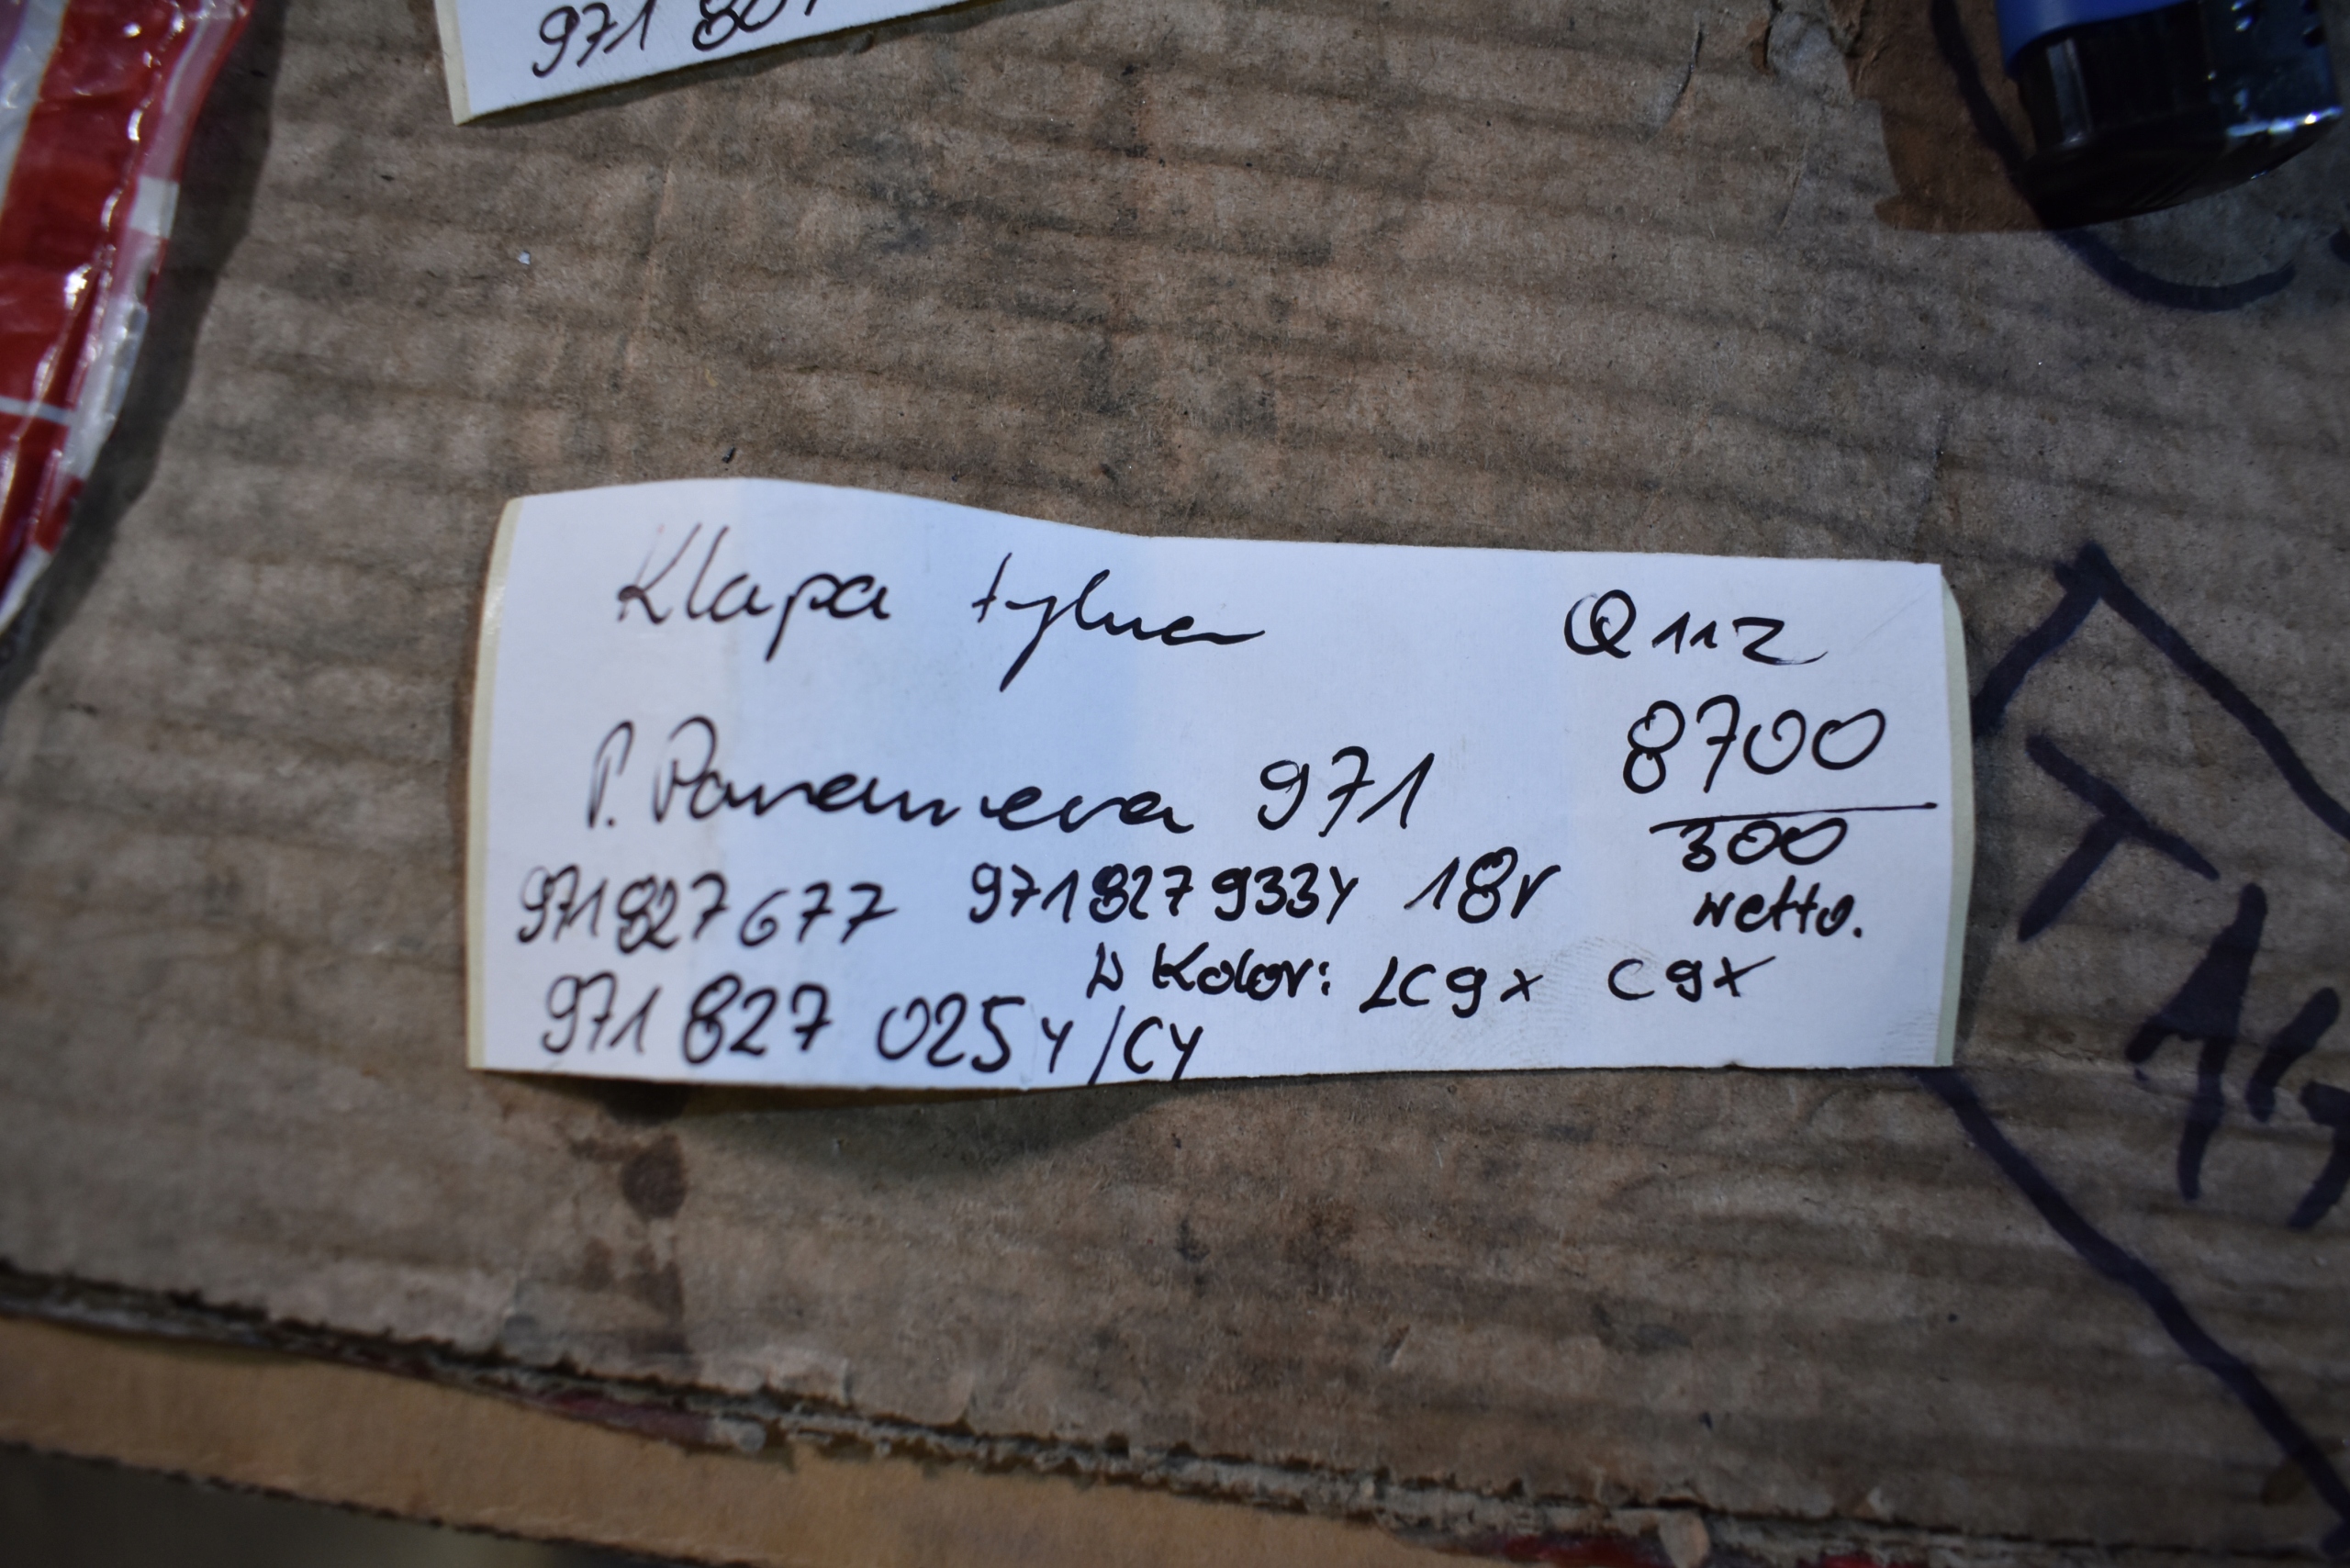 971 80
Klapa tylna Q112
8700
P. Panamera 971
300
971827677 971827933Y 18r netto.
↳ Kolor: LC9X C9X
971 827 025Y/CY
T